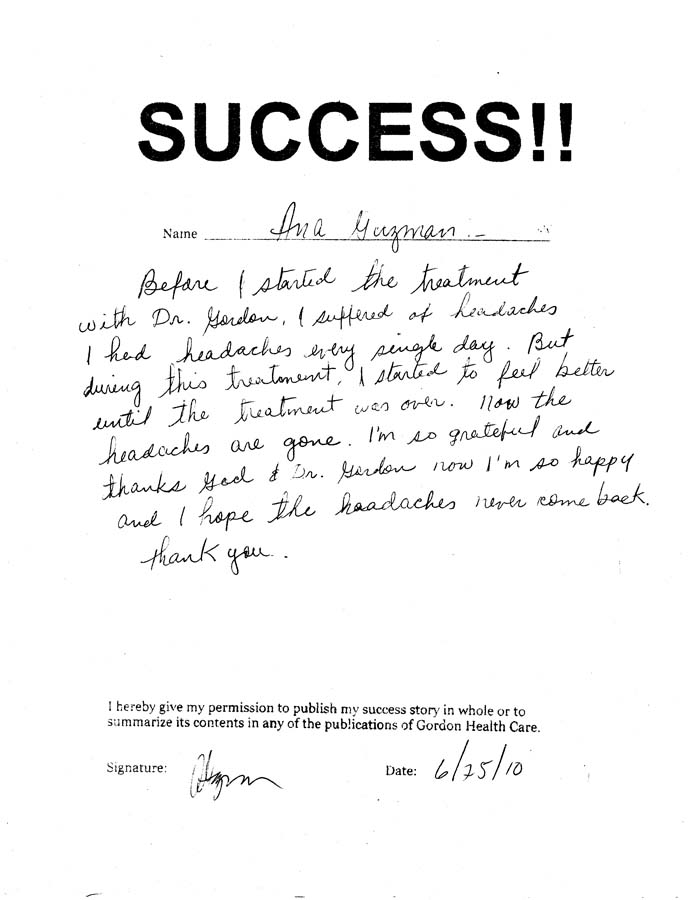 SUCCESS!!
Name Ana Guzman.-
Before I started the treatment
with Dr. Gordon, I suffered of headaches
I had headaches every single day. But
during this treatment, I started to feel better
until the treatment was over. Now the
headaches are gone. I'm so grateful and
thanks God & Dr. Gordon now I'm so happy
and I hope the headaches never come back.
thank you.
I hereby give my permission to publish my success story in whole or to
summarize its contents in any of the publications of Gordon Health Care.
Signature:
Date: 6/25/10